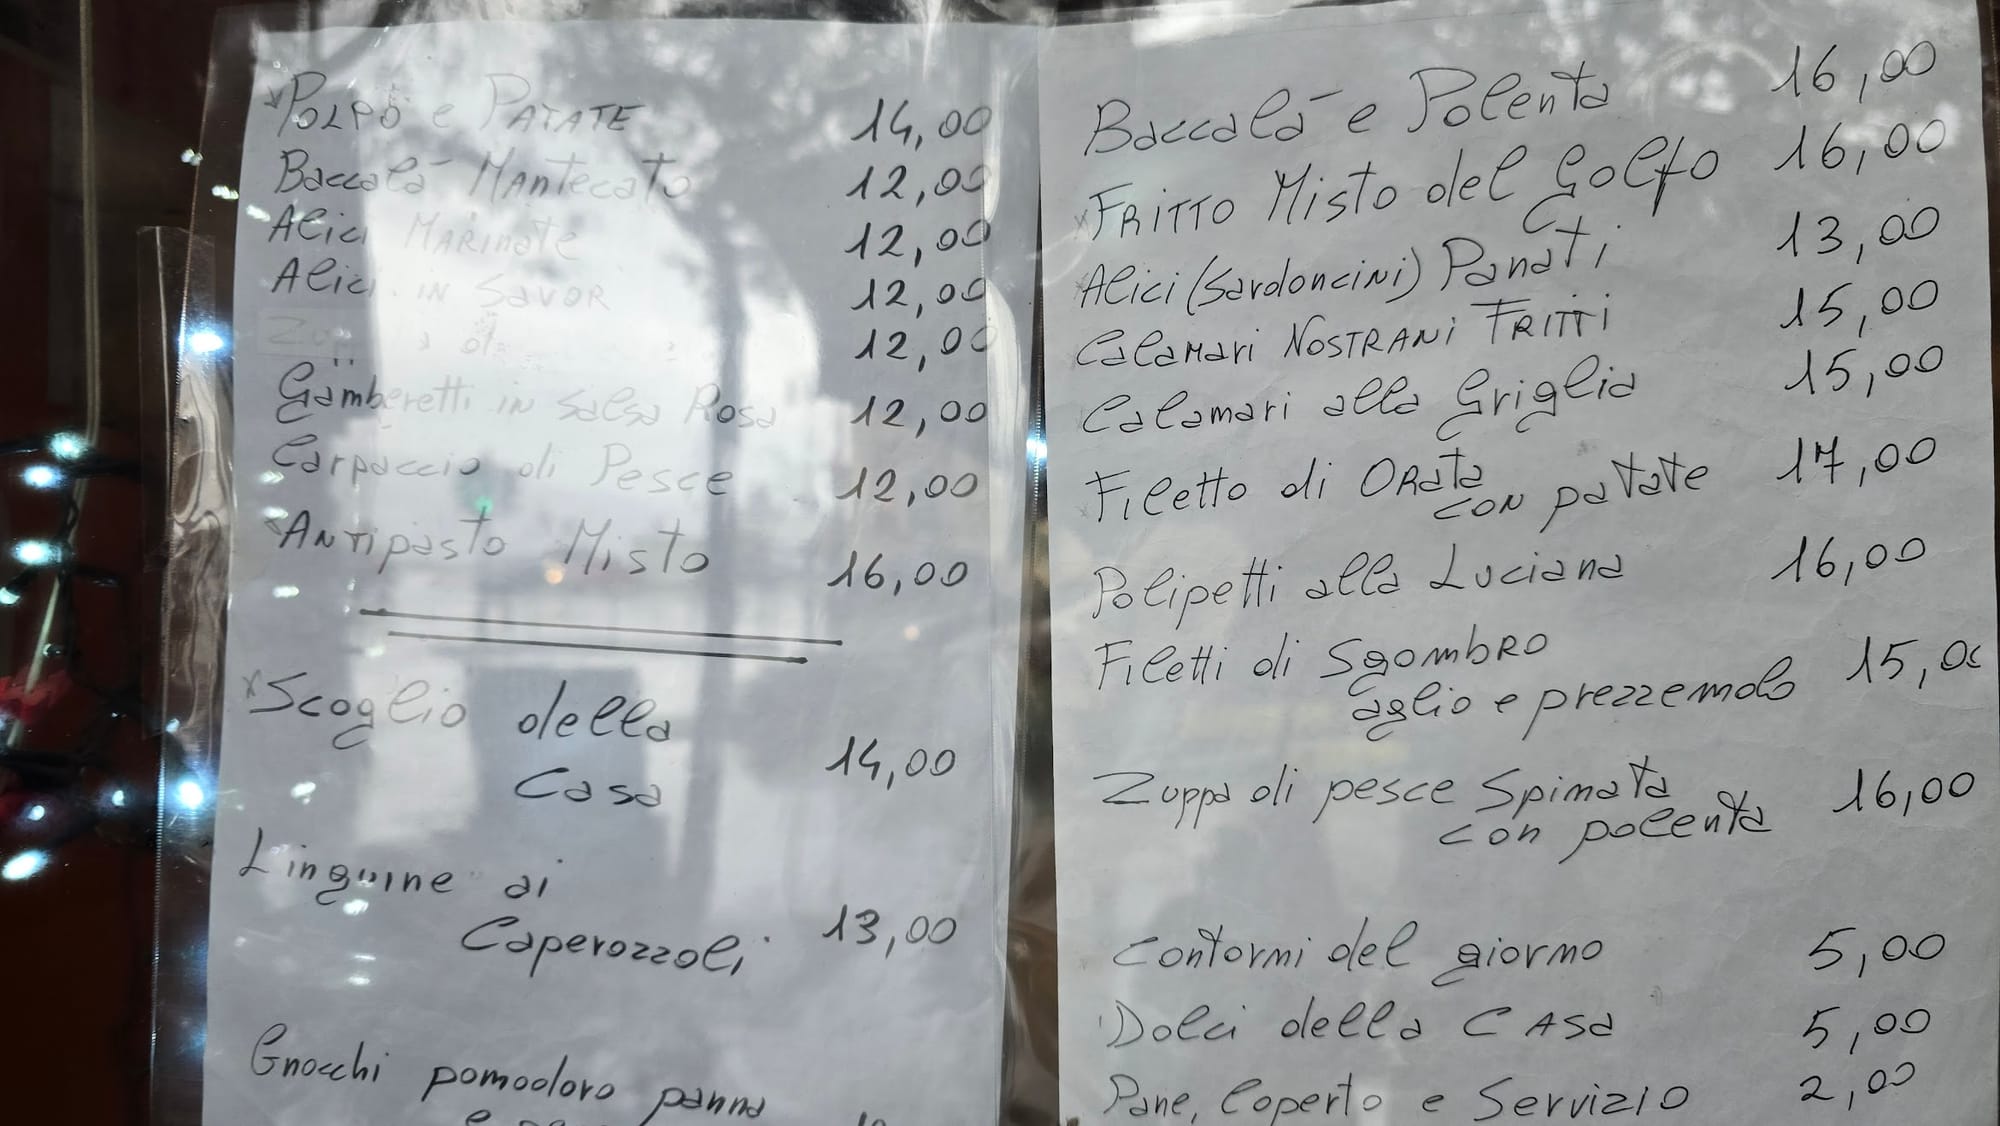 POLPO e PATATE 14,00
Baccalà Mantecato 12,00
Alici Marinate 12,00
Alici in Savor 12,00
12,00
Gamberetti in Salsa Rosa 12,00
Carpaccio di Pesce 12,00
Antipasto Misto 16,00
Scoglio della
Casa 14,00
Linguine ai
Caperozzoli 13,00
Gnocchi pomodoro panna
Baccalà e Polenta 16,00
FRITTO Misto del Golfo 16,00
Alici (Sardoncini) Panati 13,00
Calamari NOSTRANI FRITTI 15,00
Calamari alla Griglia 15,00
Filetto di ORata
con patate 17,00
Polipetti alla Luciana 16,00
Filetti di SgombRO
aglio e prezzemolo 15,00
Zuppa di pesce Spinata
con polenta 16,00
Contorni del giorno 5,00
Dolci della CASa 5,00
Pane, Coperto e Servizio 2,00